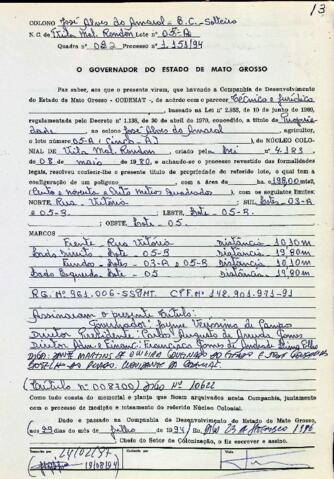 13
COLONO José Alves do Amaral - B.C. - Solteiro
N. C. de Vila Mal. Rondon Lote nº 05-A
Quadra nº 022 Processo nº 1.151/94
O GOVERNADOR DO ESTADO DE MATO GROSSO
Faz saber, aos que o presente virem, que havendo a Companhia de Desenvolvimento
do Estado de Mato Grosso - CODEMAT -, de acordo com o parecer Técnico e Jurídico
baseado na Lei nº 2.885, de 10 de junho de 1980,
regulamentada pelo Decreto nº 1.138, de 30 de abril de 1970, concedido, a título de Proprie
dade, ao colono José Alves do Amaral agricultor,
o lote número 05-A (Cinco-A) do NÚCLEO COLO-
NIAL DE Vila Mal. Rondon, criado pela Lei nº 4.183,
de 08 de maio de 1980, e achando-se o processo revestido das formalidades
legais, resolveu conferir-lhe o presente título de propriedade do referido lote, o qual tem a
configuração de um polígono com a área de ha (198,00 mts²
(Cento e noventa e oito metros quadrados) com os seguintes limites:
NORTE, Rua Vitória SUL Lotes 03-A
e 05-B. LESTE, Lote 05-B.
; OESTE, Lote - 05.
MARCOS
Frente Rua Vitória Distância - 10,10m
Lado Direito Lote - 05-B Distância - 19,80m
Fundos - Lotes - 03-A e 05-B Distância - 10,10m
Lado Esquerdo Lote - 05 Distância - 19,80m
RG. Nº 961.006-SSPMT. CPF. Nº 142.901.971-91
Assinaram o presente título:
Governador: Jayme Veríssimo de Campos
Diretor Presidente: Carlos Augusto de Arruda Gomes
(Título nº 008705) João Nº 10622
Tudo consta do memorial e planta que foram arquivados nesta Companhia, juntamente com
o processo de medição e loteamento do referido Núcleo Colonial.
Dado e passado na Companhia de Desenvolvimento do Estado de Mato Grosso,
aos 29 dias do mês de julho de 1994
Chefe do Setor de Colonização, o fiz escrever e assino.